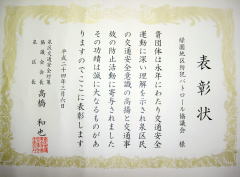 表彰状
緑園地区防犯パトロール協議会 様
貴団体は永年にわたり交通安全
運動に深い理解を示され泉区民
の交通安全意識の高揚と交通事
故の防止活動に寄与されました
その功績は誠に大なるものがあ
りますのでここに表彰します
平成二十四年三月六日
泉区交通安全対策
協議会会長
泉区長
高橋和也